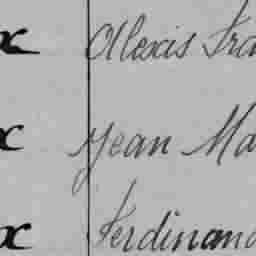 x Alexis Fra
x Jean Ma
x Ferdinand